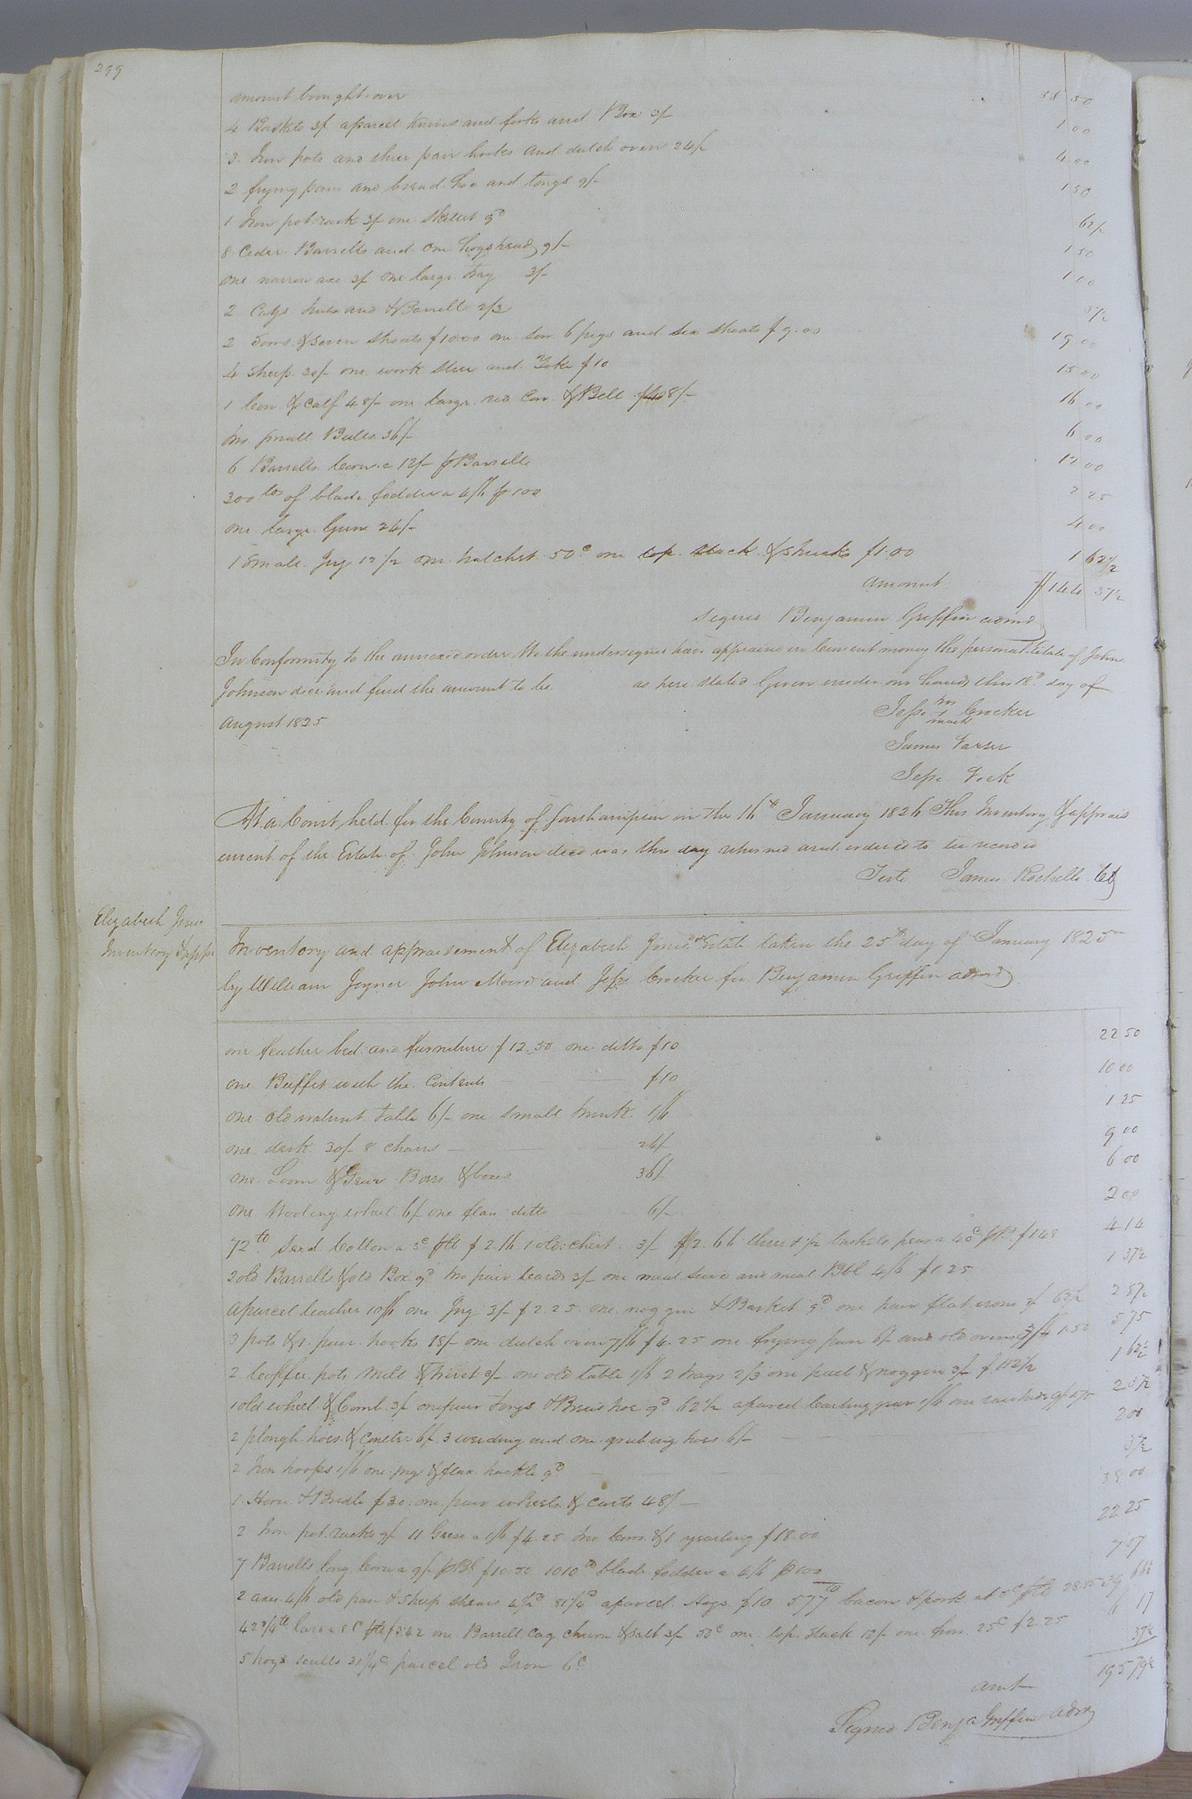 299
amount brought over 38 50
4 Baskets 3/ a parcel knives and forks and Box 3/ 1 00
3 Iron pots and three pair hooks and dutch oven 24/ 4 00
2 frying pans and bread hoe and tongs 9/- 1 50
1 Iron pot rack 3/ one skillet 9d 62½
8 Ceder Barrells and one hogshead 9/- 1 50
one narrow axe 3/ one large tray 3/- 1 00
2 and Barrell 2/3 37½
2 sows & seven shoats $10.00 one sow 6 pigs and six shoats $9.00 19 00
4 sheep 30/ one work steer and Yoke $10 15 00
1 Cow & Calf 48/- one large red Cow & Bell 48/- 16 00
two small Bulls 36/- 6 00
6 Barrells Corn a 12/- p Barrell 12 00
300 lbs of blade fodder a 4/6 p 100 2 25
one large Gun 24/- 4 00
1 small Jug 12½ one hatchet 50c one top stack & shucks $1.00 1 62½
amount $144 37½
Signed Benjamin Griffin admr
In Conformity to the annexed order We the undersigned have appraised in Current money the personal Estate of John
Johnson decd and find the amount to be as here stated Given under our hands this 18th day of
August 1825
Jesse his mark Crocker
James
Jesse
At a Court held for the County of Southampton on the 16th January 1826 This Inventory & apprais
ement of the Estate of John Johnson decd was this day returned and ordered to be recorded
Teste James Rochelle Ct
Elizabeth
Inventory & appr
Inventory and appraisement of Elizabeth Estate taken the 25th day of January 1825
by William Joyner John Moore and Jesse Crocker for Benjamin Griffin admr
one feather bed and furniture $12.50 one ditto $10 22 50
one Buffet with the Contents $10 10 00
one old walnut table 6/- one small trunk 1/6 1 25
one desk 30/ 8 chairs 24/- 9 00
one Loom & Gear Bars & boxes 36/ 6 00
one Wooling wheel 6/ one flax ditto 6/- 2 00
72lb seed Cotton a 3c plb $2.16 1 old chest 3/- $2.66 three & ½ bushels peas a $1.48 4 14
2 old Barrells & old Box 9d two pair beards 3/ one meal sieve and meal Bbl 4/6 $1.25 1 37½
a parcel leather 10/6 one Jug 3/ $2.25 one noggin & Basket 9d one pair flat irons 3/ 62½ 2 87½
3 pots & 1 pair hooks 18/- one dutch oven 7/6 $4.25 one frying pan 6/ and old ovens 3/ $1.50 5 75
2 Coffee pots Mill & 3/- one old table 1/6 2 trays 2/3 one pail & noggin 3/ $1.12½ 1 62½
1 old wheel & Comb 3/ one pair tongs & Bread hoe 9d 62½ a parcel Carting gear 1/6 one 9/ 2 37½
2 plough hoes & coulter 6/ 3 weeding and one grubing hoes 6/- 2 00
2 Iron hoops 1/6 one jug & flax hackle 9d 37½
1 Horse & Bridle $30 one pair wheels & Cart 48/- 38 00
2 Iron pot racks 9/ 11 Geese a 1/6 $4.25 two Cows & 1 yearling $18.00 22 25
7 Barrells long Corn a 9/ pBl $10.50 1010lb blade fodder a 4/6 p100 7 57
2 axes 4/6 old pair & Sheep shears 81¼ a parcel Hogs $10 577lb bacon & pork at 5c plb 28.85
42¾lb lard a 8c plb $3.42 one Barrell Cag churn & salt 3/- 50c one top stack 12/- one 25c $2.25 6 17
5 hogs 31¼c parcel old Iron 6c 37½
amt 195 79½
Signed Benja Griffin admr